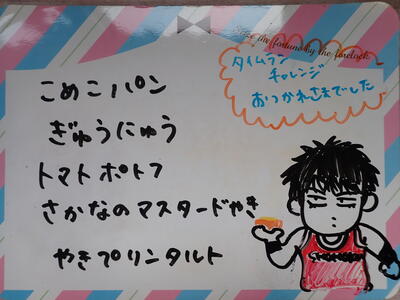 the fortune by the forelock
タイムラン
チャレンジ
おつかれさまでした
こめこパン
ぎゅうにゅう
トマトポトフ
さかなのマスタードやき
やきプリンタルト